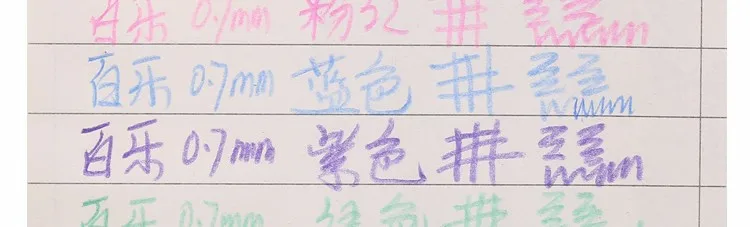 百乐 0.7mm 粉红
百乐 0.7mm 蓝色
百乐 0.7mm 紫色
百乐 0.7mm 绿色